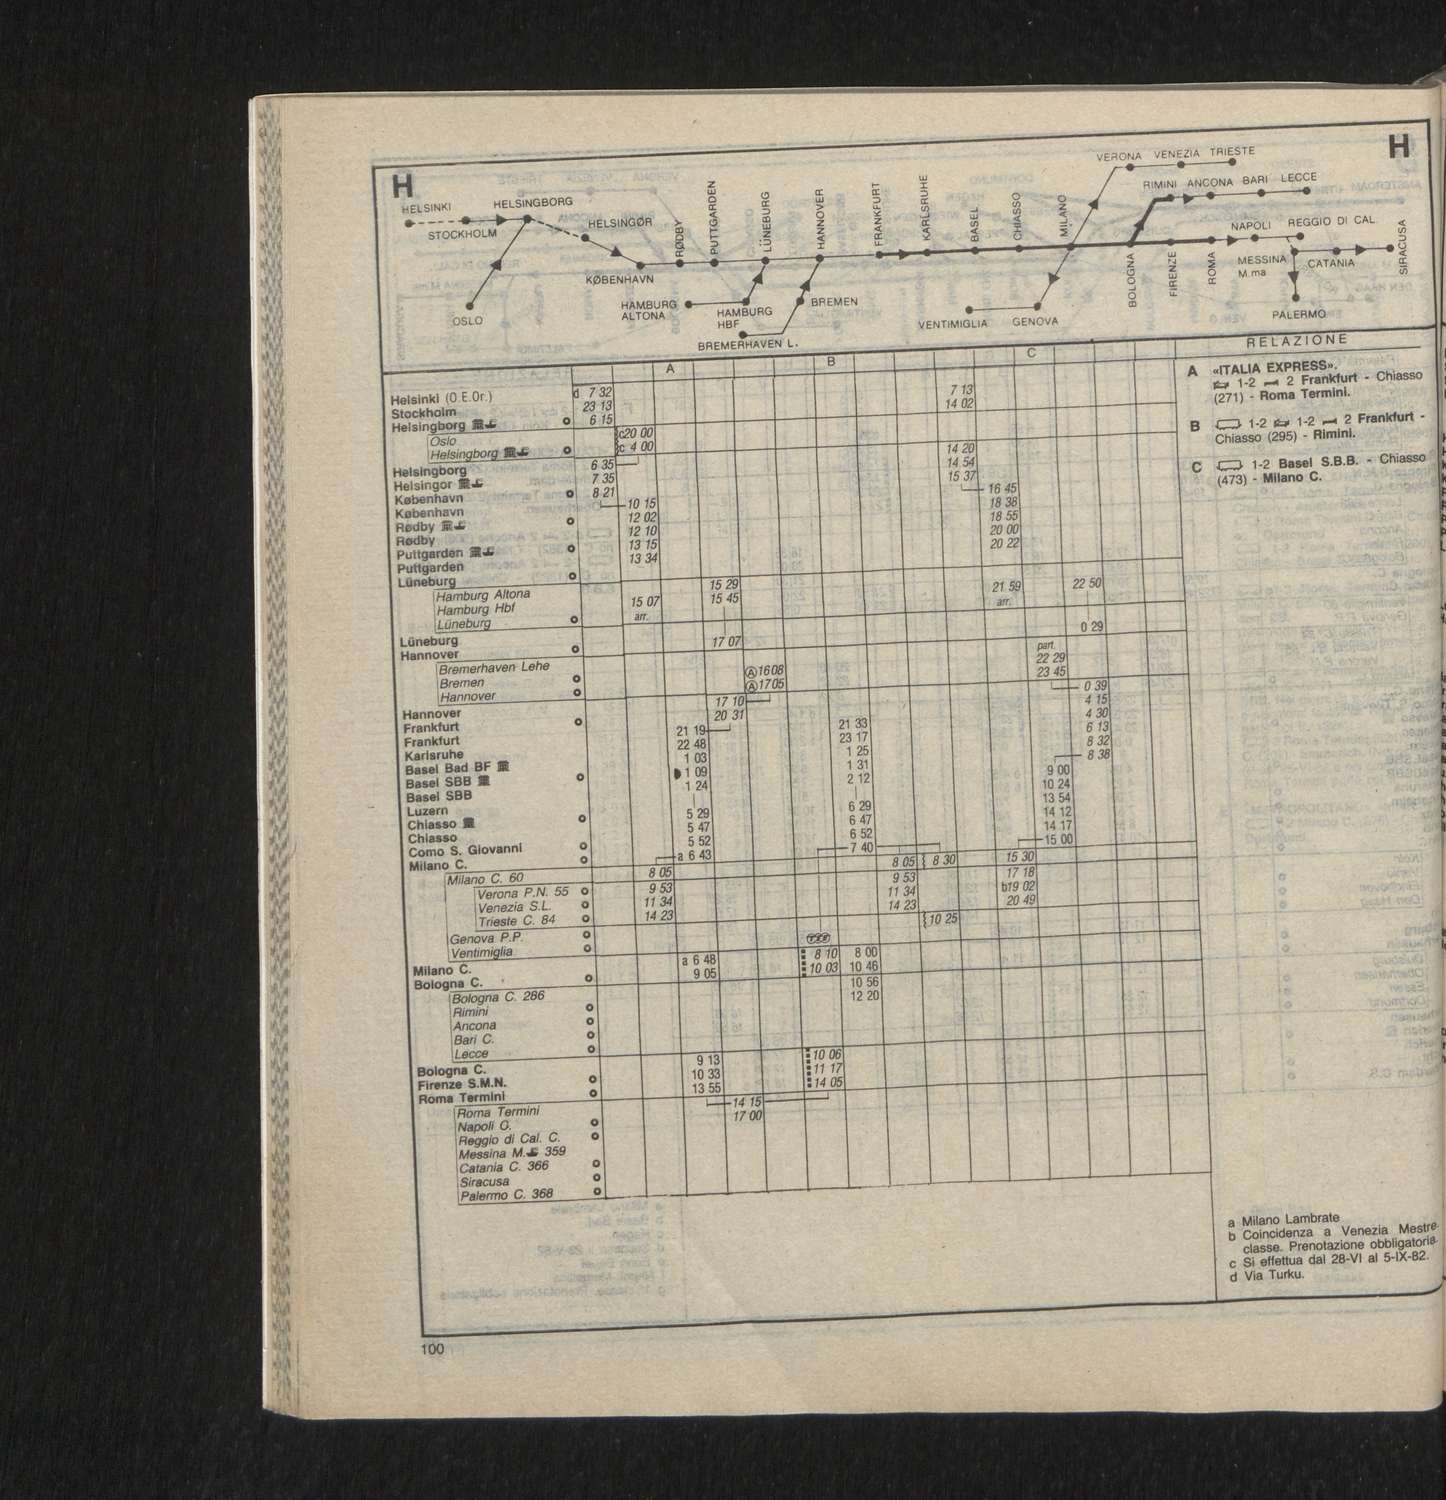 H H
VERONA VENEZIA TRIESTE
RIMINI ANCONA BARI LECCE
HELSINKI HELSINGBORG
STOCKHOLM HELSINGØR RØDBY PUTTGARDEN LÜNEBURG HANNOVER FRANKFURT KARLSRUHE BASEL CHIASSO MILANO
NAPOLI REGGIO DI CAL
KØBENHAVN
BOLOGNA FIRENZE ROMA MESSINA M.ma CATANIA SIRACUSA
OSLO
HAMBURG ALTONA
HAMBURG HBF
BREMEN
BREMERHAVEN L.
VENTIMIGLIA GENOVA
PALERMO
A B C
RELAZIONE
Helsinki (O.E.Or.) d 7 32 7 13
Stockholm 23 13 14 02
Helsingborg 6 15
Oslo c20 00
Helsingborg c 4 00
Helsingborg 6 35 14 20
Helsingor 7 35 14 54
København 8 21 15 37
København 10 15 16 45
Rødby 12 02 18 38
Rødby 12 10 18 55
Puttgarden 13 15 20 00
Puttgarden 13 34 20 22
Lüneburg
Hamburg Altona 15 29 22 50
Hamburg Hbf 15 07 15 45 21 59
Lüneburg arr. arr.
Lüneburg
Hannover 17 07 0 29
Bremerhaven Lehe Ⓐ1608 part. 22 29
Bremen Ⓐ1705 23 45
Hannover
Hannover 17 10 0 39
Frankfurt 20 31 4 15
Frankfurt 21 19 21 33 4 30
Karlsruhe 22 48 23 17 6 13
Basel Bad BF 1 03 1 25 8 32
Basel SBB 1 09 1 31 8 38
Basel SBB 1 24 2 12 9 00
Luzern 10 24
Chiasso 5 29 6 29 13 54
Chiasso 5 47 6 47 14 12
Como S. Giovanni 5 52 6 52 14 17
Milano C. a 6 43 7 40 15 00
Milano C. 60 8 05 8 05 8 30 15 30
Verona P.N. 55 9 53 9 53 17 18
Venezia S.L. 11 34 11 34 b19 02
Trieste C. 84 14 23 14 23 20 49
Genova P.P. 10 25
Ventimiglia
Milano C. a 6 48 8 10 8 00
Bologna C. 9 05 10 03 10 46
Bologna C. 286 10 56
Rimini 12 20
Ancona
Bari C.
Lecce
Bologna C. 9 13 10 06
Firenze S.M.N. 10 33 11 17
Roma Termini 13 55 14 05
Roma Termini 14 15
Napoli C. 17 00
Reggio di Cal. C.
Messina M. 359
Catania C. 366
Siracusa
Palermo C. 368
A «ITALIA EXPRESS».
1-2 2 Frankfurt - Chiasso
(271) - Roma Termini.
B 1-2 1-2 2 Frankfurt -
Chiasso (295) - Rimini.
C 1-2 Basel S.B.B. - Chiasso
(473) - Milano C.
a Milano Lambrate
b Coincidenza a Venezia Mestre.
classe. Prenotazione obbligatoria.
c Si effettua dal 28-VI al 5-IX-82.
d Via Turku.
100